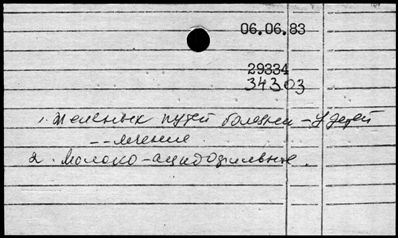 06.06.83
29334
34303
1. Желчных путей болезни - у детей
-- лечение
2. Молоко - ацидофильные.